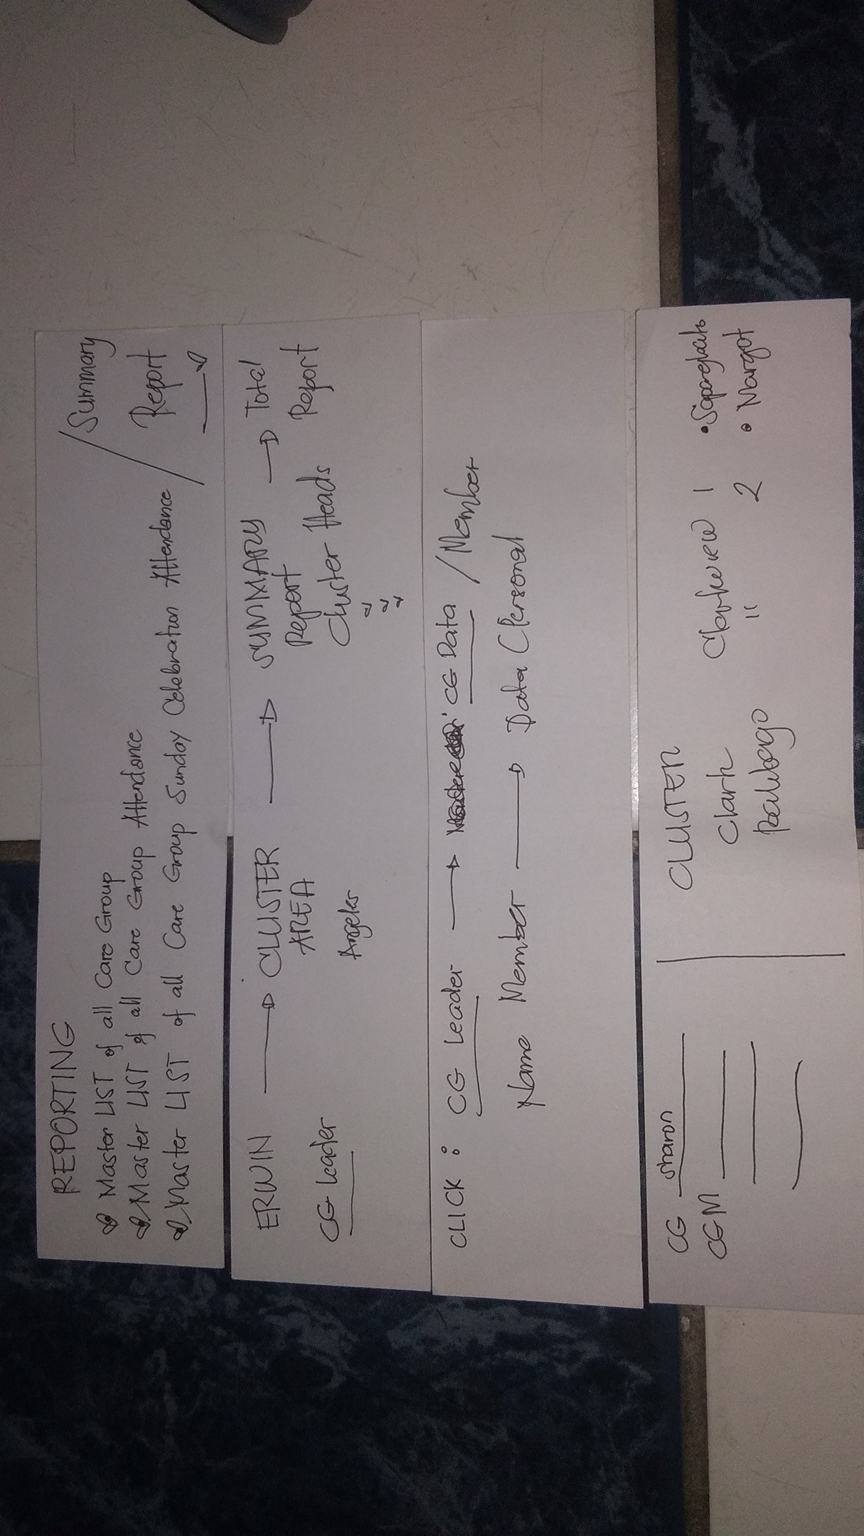 REPORTING
Master LIST of all Care Group
Master LIST of all Care Group Attendance
Master LIST of all Care Group Sunday Celebration Attendance
/ Summary
Report
ERWIN → CLUSTER → SUMMARY → Total
AREA Report Report
CG Leader Angeles Cluster Heads
CLICK : CG Leader → CG Data / Member
Name Member → Data (Personal
CG Sharon
CGM
CLUSTER
Clark Clarkview 1 • Sapangbato
Balibago " 2 • Margot